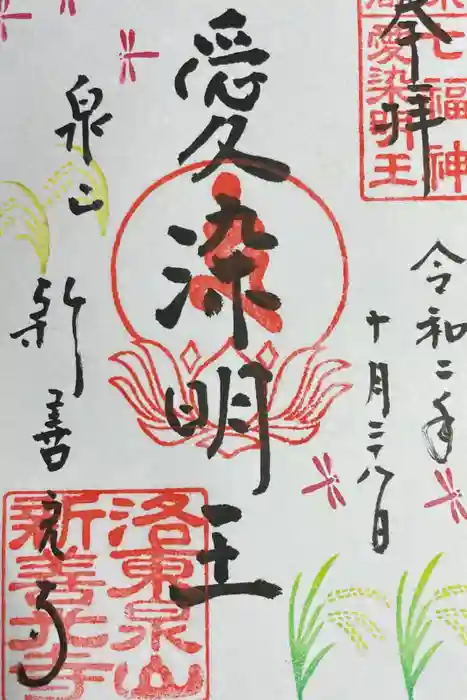 奉拝
七福神
愛染明王
令和二年
十月二八日
愛染明王
泉山
新善光寺
洛東泉山
新善光寺